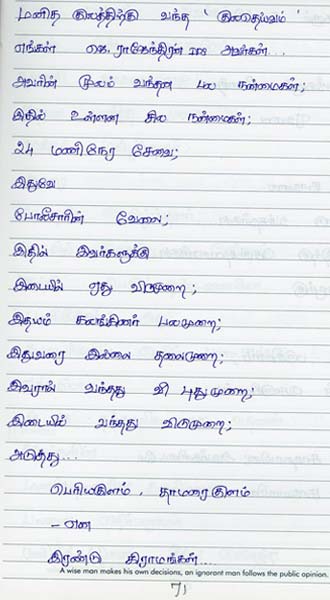 மனித குலத்திற்கு வந்த 'குலதெய்வம்'
எங்கள் கெ. ராஜேந்திரன் IPS அவர்கள்..
அவரின் மூலம் வந்தன பல நன்மைகள்;
இதில் உள்ளன சில நன்மைகள்;
24 மணிநேர சேவை;
இதுவே
போலீசாரின் வேலை;
இதில் இவர்களுக்கு
இடையில் ஏது விடுமுறை;
இதயம் கலங்கினர் பலமுறை;
இதுவரை இல்லை தலைமுறை;
இவரால் வந்தது வி புதுமுறை;
இடையில் வந்தது விடுமுறை;
அடுத்து...
பெரியகுளம், தாமரைகுளம்
- என
இரண்டு கிராமங்கள்...
A wise man makes his own decisions, an ignorant man follows the public opinion.
71